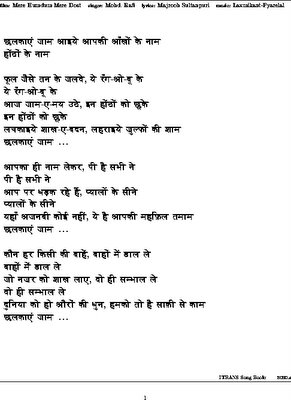 film: Mere Humdum Mere Dost singer: Mohd. Rafi lyrics: Majrooh Sultanpuri music: Laxmikant-Pyarelal
छलकाएं जाम आइये आपकी आँखों के नाम
होंठों के नाम
फूल जैसे तन के जलवे, ये रँग-ओ-बू के
ये रँग-ओ-बू के
आज जाम-ए-मय उठे, इन होंठों को छूके
इन होंठों को छूके
लचकाइये शाख-ए-बदन, लहराइये ज़ुल्फों की शाम
छलकाएं जाम ...
आपका ही नाम लेकर, पी है सभी ने
पी है सभी ने
आप पर धड़क रहे हैं, प्यालों के सीने
प्यालों के सीने
यहाँ अजनबी कोई नहीं, ये है आपकी महफ़िल तमाम
छलकाएं जाम ...
कौन हर किसी की बाहें, बाहों में डाल ले
बाहों में डाल ले
जो नज़र को शाख लाए, वो ही सम्भाल ले
वो ही सम्भाल ले
दुनिया को हो औरों की धुन, हमको तो है साक़ी से काम
छलकाएं जाम ...
ITRANS Song Book
1